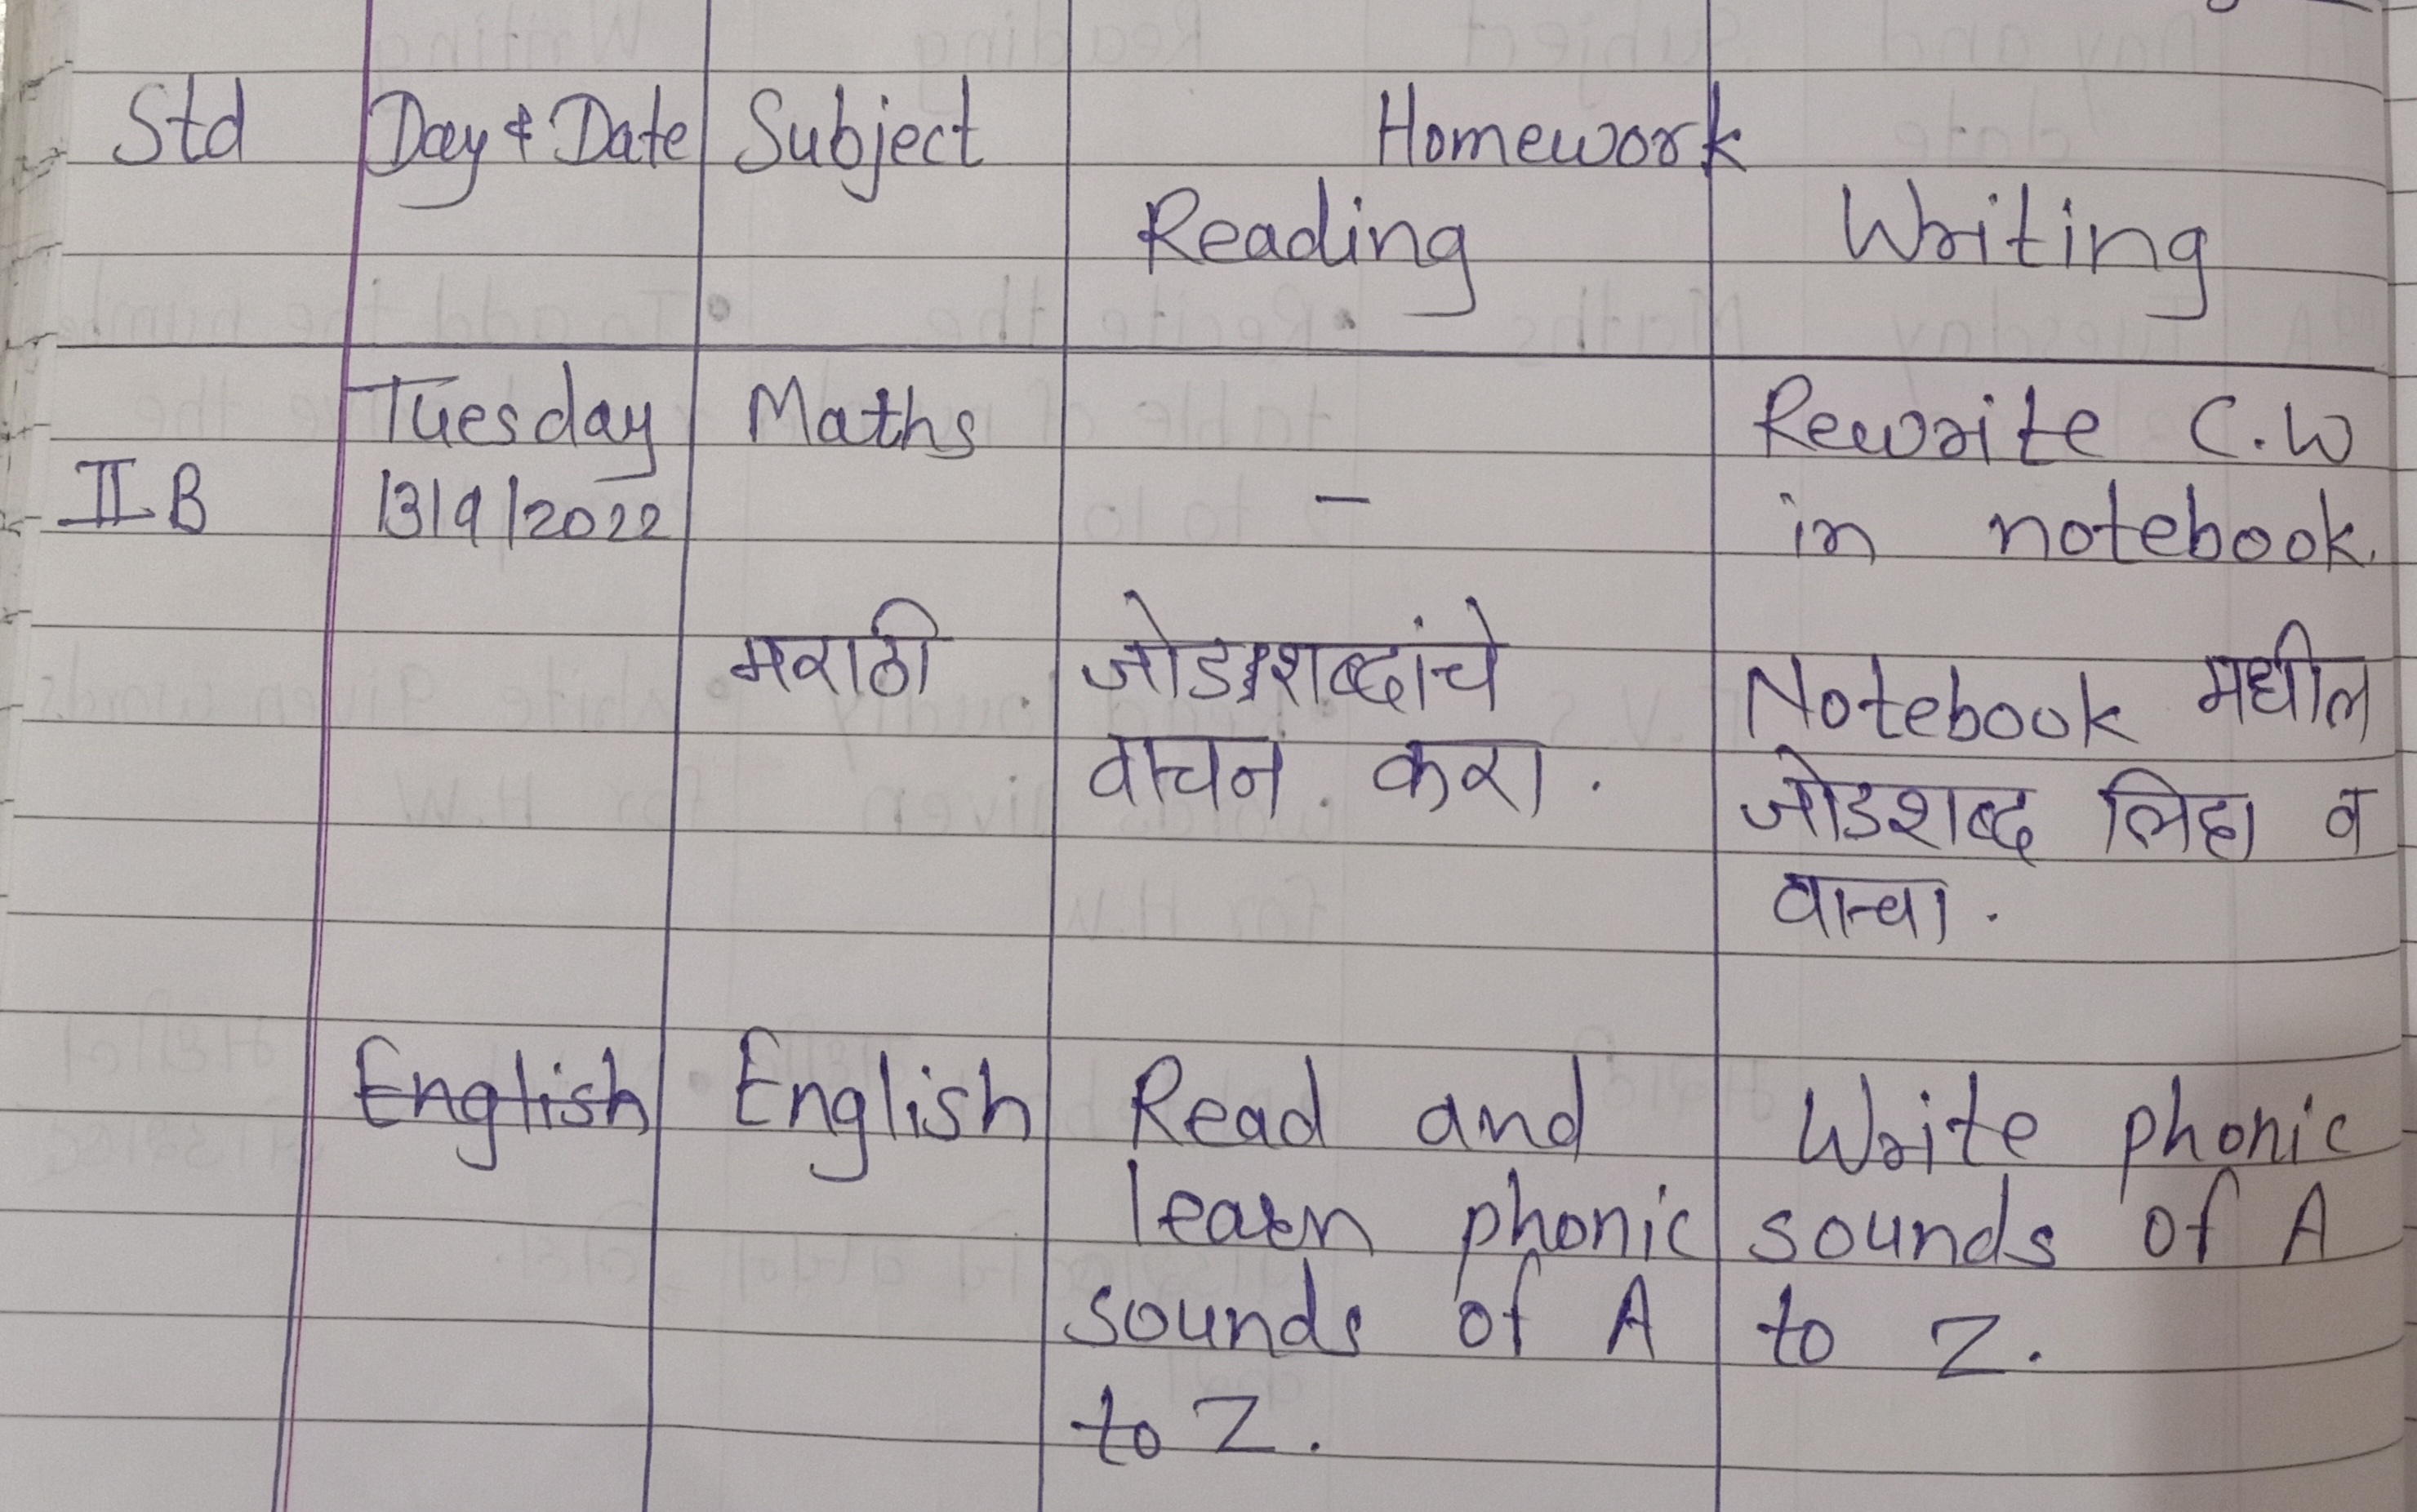 Std Day & Date Subject Homework
Reading Writing
Tuesday Maths Rewrite C.W
II B 13/9/2022 - in notebook.
मराठी जोडशब्दांचे Notebook मधील
वाचन करा. जोडशब्द लिहा व
वाचा.
English English Read and Write phonic
learn phonic sounds of A
sounds of A to Z.
to Z.